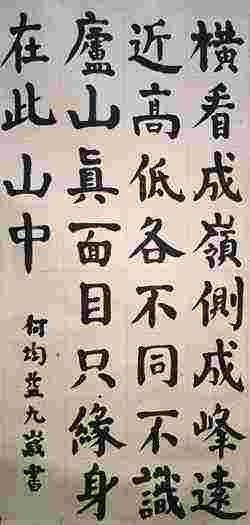 橫看成嶺側成峰遠
近高低各不同不識
廬山真面目只緣身
在此山中
何均益九歲書